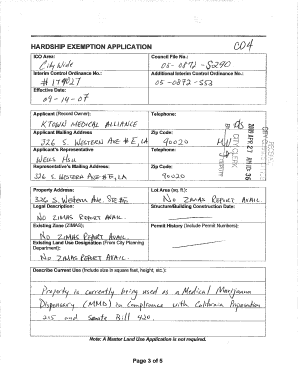 CO4
HARDSHIP EXEMPTION APPLICATION
ICO Area: Council File No.:
City Wide 05-0872-S290
Interim Control Ordinance No.: Additional Interim Control Ordinance No.:
#179027 05-0872-S53
Effective Date:
09-14-07
Applicant (Record Owner): Telephone:
KTOWN MEDICAL ALLIANCE
Applicant Mailing Address Zip Code:
326 S. WESTERN AVE #E, LA 90020
Applicant's Representative Telephone:
WELLS
Representative's Mailing Address Zip Code:
326 S. WESTERN AVE #E, LA 90020
CITY CLERK
Property Address: Lot Area (sq. ft.):
326 S. WESTERN AVE, STE #E No ZIMAS REPORT AVAIL.
Legal Description: Structure/Building Construction Date:
No ZIMAS REPORT AVAIL.
Existing Zone (ZIMAS): Permit History (Include Permit Numbers):
No ZIMAS REPORT AVAIL.
Existing Land Use Designation (From City Planning
Department):
No ZIMAS REPORT AVAIL
Describe Current Use (Include size in square feet, height, etc.):
Property is currently being used as a Medical Marijuana
Dispensary (MMD) in compliance with California Proposition
215 and Senate Bill 420.
Note: A Master Land Use Application is not required.
Page 3 of 5